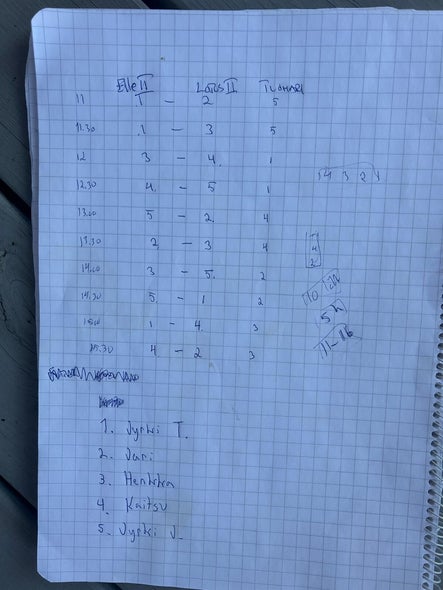 Elle II Lotus II Tuomari
11 1 - 2 5
11.30 1 - 3 5
12 3 - 4. 1
12.30 4. - 5 1
13.00 5 - 2. 4
13.30 2 - 3 4
14.00 3 - 5. 2
14.30 5. - 1 2
15.00 1 - 4. 3
15.30 4 - 2 3
1 4 3 2 1
1
4
2
5 h
11-16
1. Jyrki T.
2. Jari
3. Henkka
4. Kaitsu
5. Jyrki J.